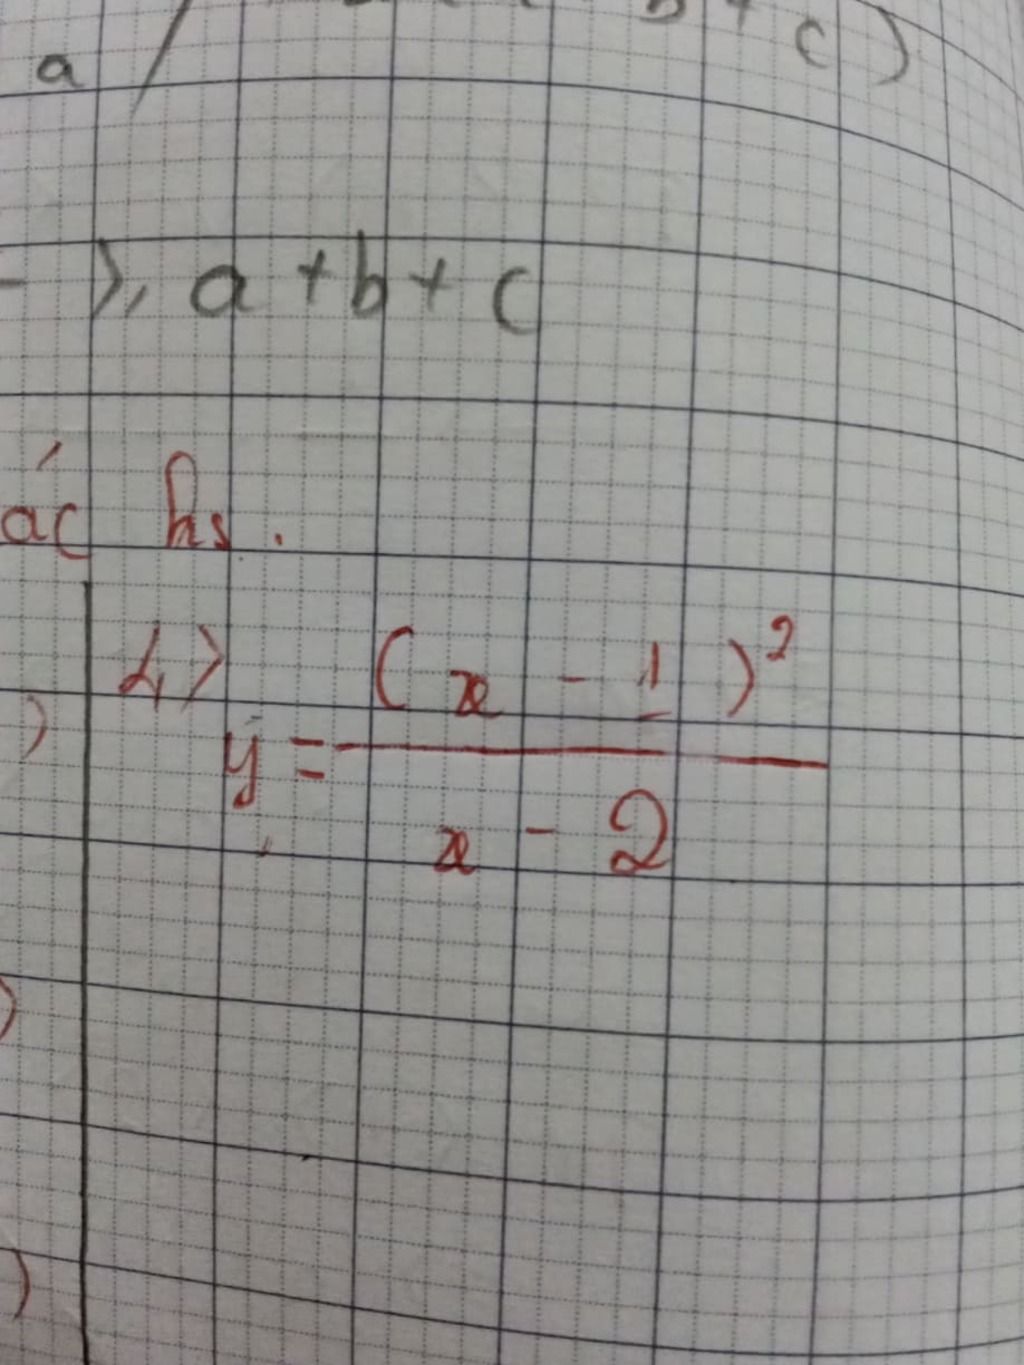 a
c)
⩾ a + b + c
ác hs.
4>
y = (x - 1)² / (x - 2)